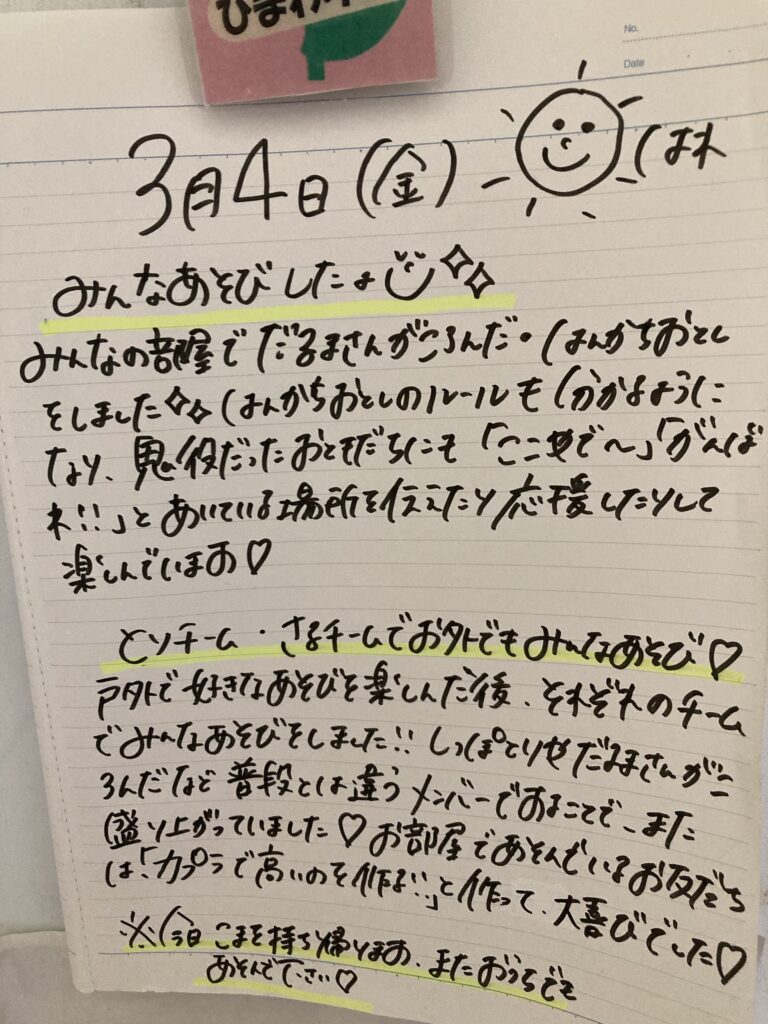 ひまわり
No.
Date
3月4日(金) はれ
みんなあそびしたよ
みんなの部屋でだるまさんがころんだ・はんかちおとし
をしました はんかちおとしのルールも分かるように
なり、鬼役だったおともだちにも「ここやで〜」「がんば
れ!!」とあいている場所を伝えたり応援したりして
楽しんでいます♡
とりチーム・さるチームでお外でもみんなあそび♡
戸外で好きなあそびを楽しんだ後、それぞれのチーム
でみんなあそびをしました!! しっぽとりやだるまさんがこ
ろんだなど普段とは違うメンバーであることで、また
盛り上がっていました♡お部屋であそんでいるお友だち
は「カプラで高いのを作る!!」と作って、大喜びでした♡
※今日こまを持ち帰ります。またおうちでも
あそんで下さい♡